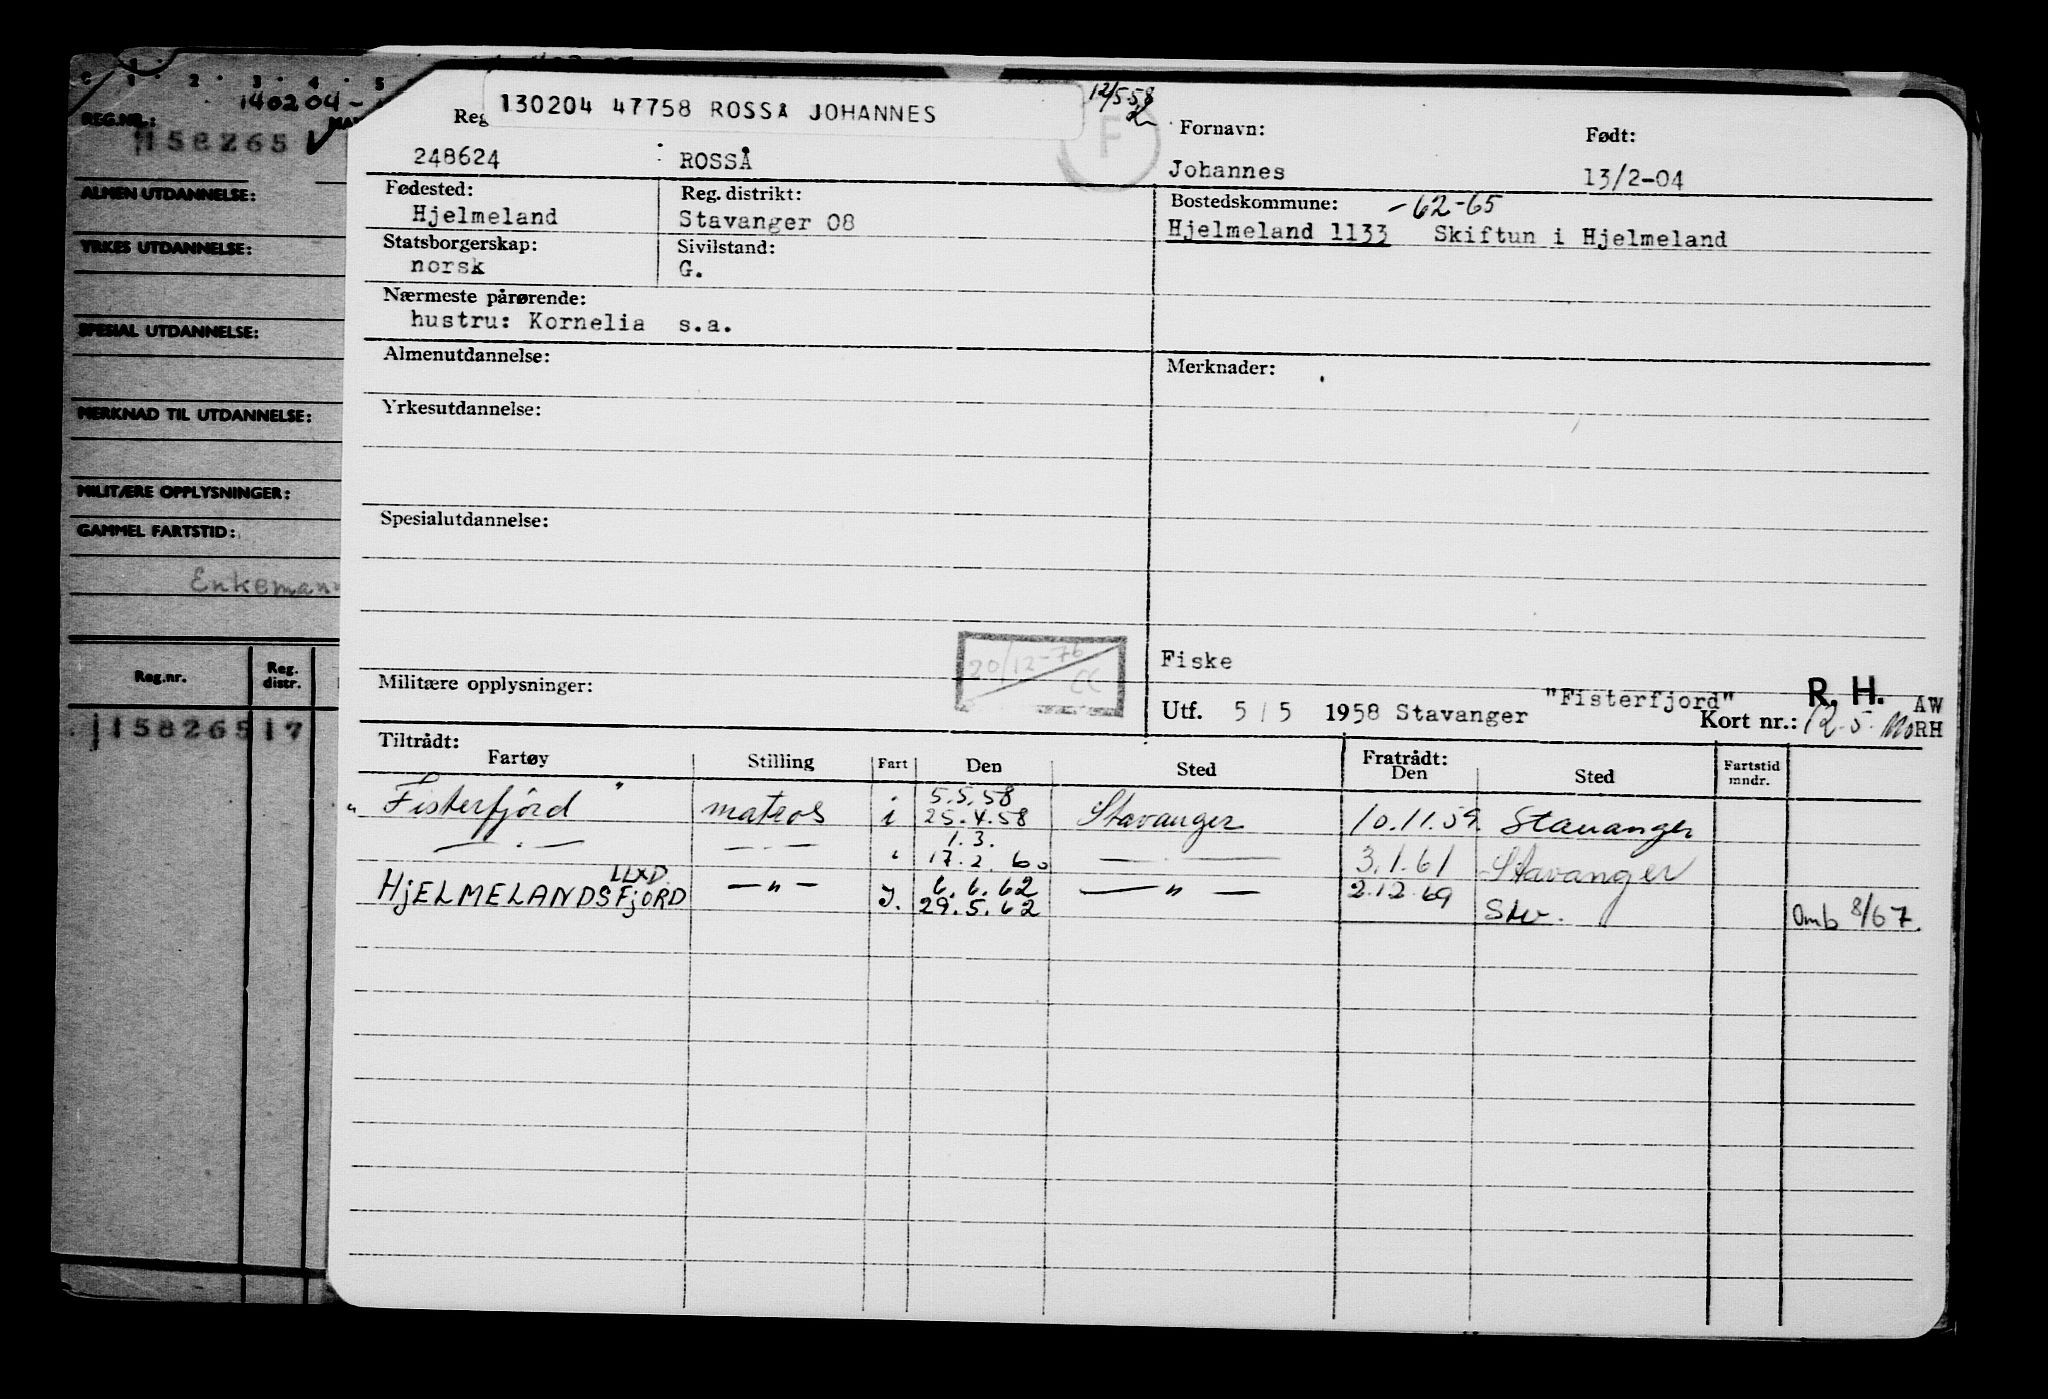 C 1 · 2 · 3 · 4 · 5
140204-
REG.NR.:
1158265
ALMEN UTDANNELSE:
YRKES UTDANNELSE:
SPESIAL UTDANNELSE:
MERKNAD TIL UTDANNELSE:
MILITÆRE OPPLYSNINGER:
GAMMEL FARTSTID:
Enkeman
Reg.nr. Reg. distr.
1158265 17
130204 47758 ROSSÅ JOHANNES
12/5 58
F
Reg Fornavn: Født:
248624 ROSSÅ Johannes 13/2-04
Fødested: Reg. distrikt: Bostedskommune: -62-65
Hjelmeland Stavanger 08 Hjelmeland 1133 Skiftun i Hjelmeland
Statsborgerskap: Sivilstand:
norsk G.
Nærmeste pårørende:
hustru: Kornelia s.a.
Almenutdannelse: Merknader:
Yrkesutdannelse:
Spesialutdannelse:
20/12-76
Fiske
Militære opplysninger:
"Fisterfjord" R. H. AW
Utf. 5/5 1958 Stavanger Kort nr.: 12.5. RH
Tiltrådt: Fratrådt:
Fartøy Stilling Fart Den Sted Den Sted Fartstid mndr.
5.5.58
"Fisterfjord" matros i 25.4.58 Stavanger 10.11.59. Stavanger
1.3.
— · — — · — " 17.2. 60 — · — 3.1.61 Stavanger
LLXD 6.6.62
HjELMELANDSFjORD — " — J. 29.5.62 — " — 2.12.69 Stv. Omb 8/67.